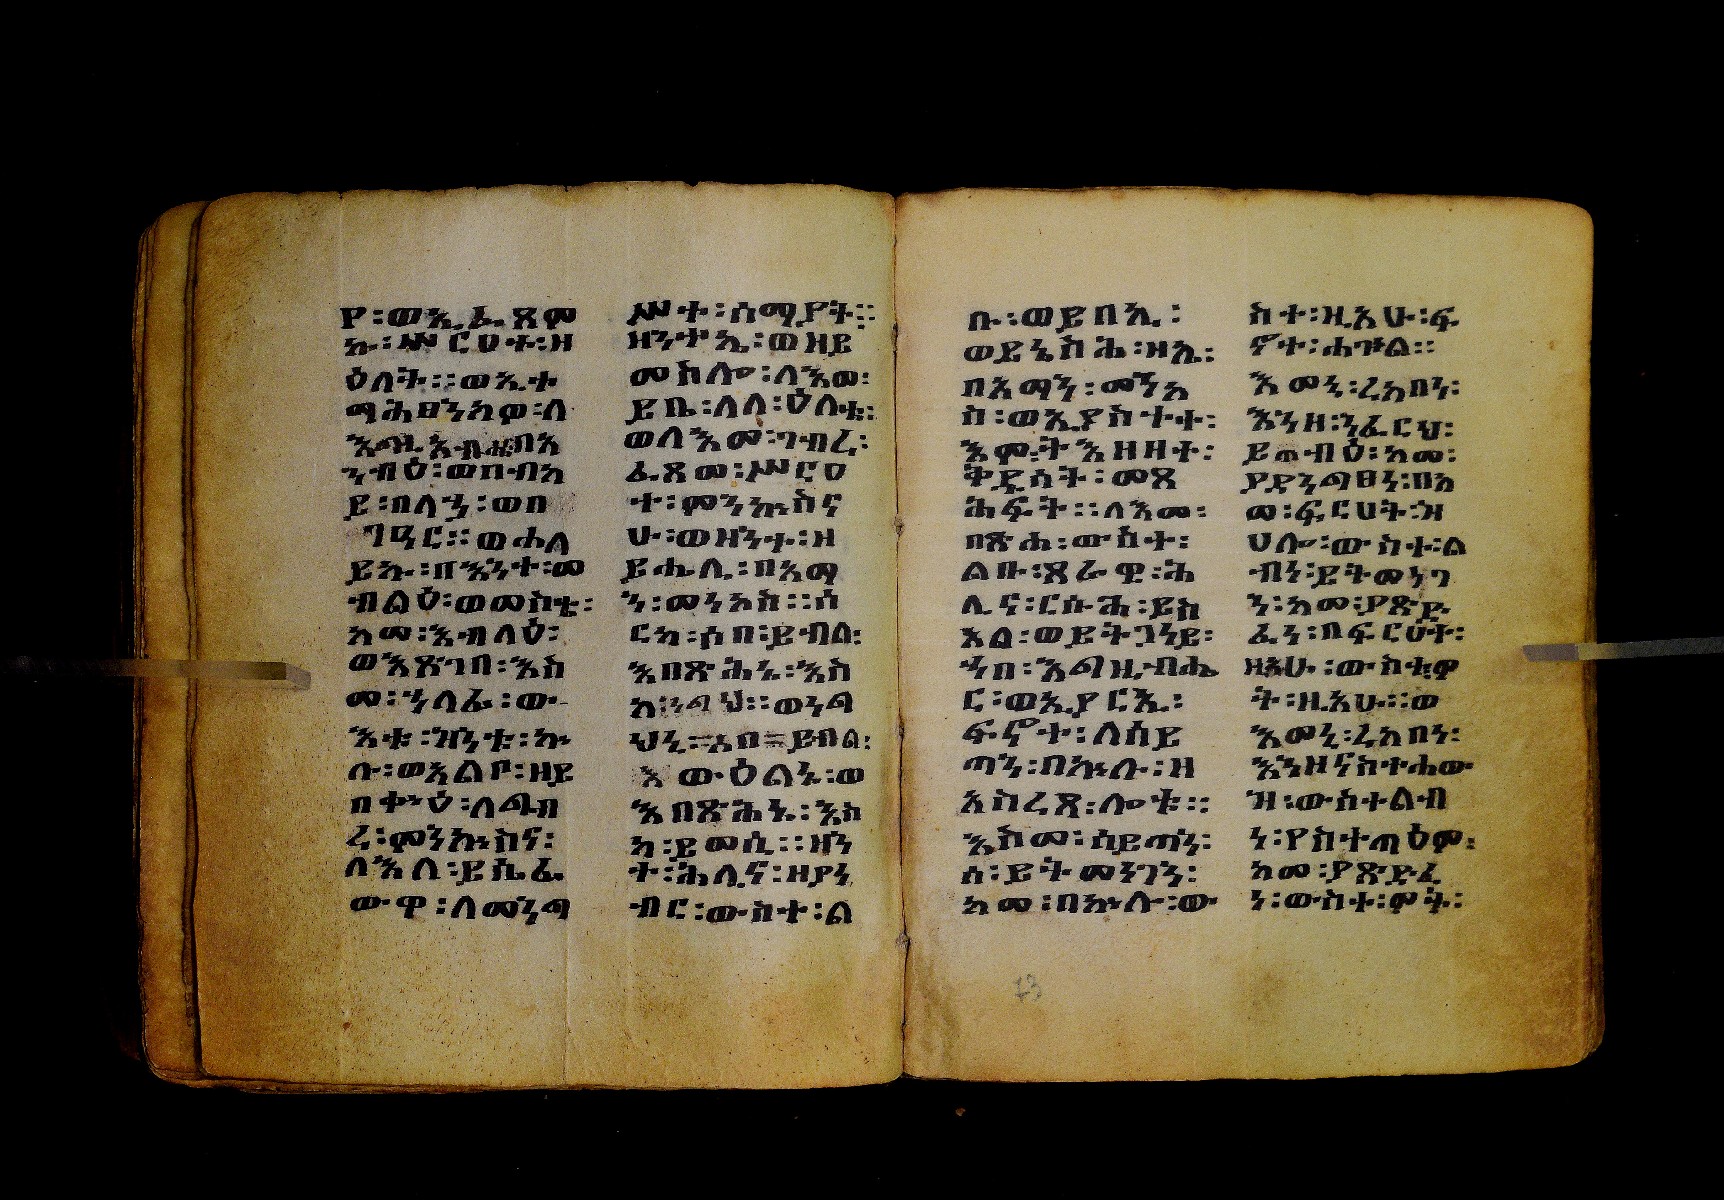 የ፡ወኢ፡ፈጸመ
ኩ፡ሥርዐተ፡ዘ
ዕለት፡፡ወኢተ
ማሕፀንኩዎ፡ለ
እግዚአብሔበአ
ንብዕ፡ወበብካ
ይ፡በለኒ፡ወበ
ግዒር፡፡ወሐለ
ይኩ፡በእንተ፡መ
ብልዕ፡ወመስቴ፡
አመ፡እብልዕ፡
ወእጽገብ፡እስ
መ፡ኀላፊ፡ው
እቱ፡ዝንቱ፡ኵ
ሉ፡ወአልቦ፡ዘይ
በቍዕ፡ለጻብ
ረ፡ምንኵስና፡
ለእለ፡ይሴፈ
ውዋ፡ለመንግ
ሥተ፡ሰማያት፡፡
ዘንተኒ፡ወዘይ
መስሎ፡ለእመ፡
ይቤ፡ለለ፡ዕለቱ፡
ወለእመ፡ገብረ፡
ፈጸመ፡ሥርዐ
ተ፡ምንኵስና
ሁ፡ወዘንተ፡ዘ
ይሔሊ፡በአማ
ን፡መነኮስ፡፡ሰ
ርከ፡ሰበ፡ይብል፡
እበጽሕኒ፡እስ
ከ፡ነግህ፡፡ወነግ
ህኒ፡ሰበ፡ይብል፡
እውዕልኑ፡ወ
እበጽሕኑ፡እስ
ከ፡ይመሲ፡፡ዘን
ተ፡ሕሊና፡ዘያነ
ብር፡ውስተ፡ል
ቡ፡ወይበኪ፡
ወይኔስሕ፡ዘኢ፡
በአማን፡መነኮ
ስ፡ወኢያስተተ፡
እምት፡እዘዘተ፡
ቅዳሴት፡መጻ
ሕፍት፡፡ለእመ፡
በጽሐ፡ውስተ፡
ልቡ፡ጸራዊ፡ሕ
ሊና፡ርሱሕ፡ይስ
አል፡ወይትጋነይ፡
ኀበ፡እግዚብሔ
ር፡ወኢያርኢ፡
ፍኖተ፡ለሰይ
ጣን፡በኵሉ፡ዘ
አስረጸ፡ሎቱ፡፡
እስመ፡ሰይጣን፡
ሰ፡ይትመነገን፡
ከመ፡በኵሉ፡ው
ስተ፡ዚአሁ፡ፍ
ኖተ፡ሐጕል፡፡
እመኒ፡ረከበነ፡
እንዘ፡ንፈርህ፡
ይጠብዕ፡ከመ፡
ያደንግፀነ፡በከ
መ፡ፍርሀት፡ዝ
ህሎ፡ውስተ፡ል
ብነ፡ይትመነገ
ነ፡ከመ፡ያጽድ
ፈነ፡በፍርሀት፡
ዘእሁ፡ውስቴዋ
ት፡ዚአሁ፡፡ወ
እመኒ፡ረከበነ፡
እንዘናስተሐው
ዝ፡ውስተልብ
ነ፡የስተጣዕም፡
ከመ፡ያጽድፈ
ነ፡ውስተ፡ሞት፡
23